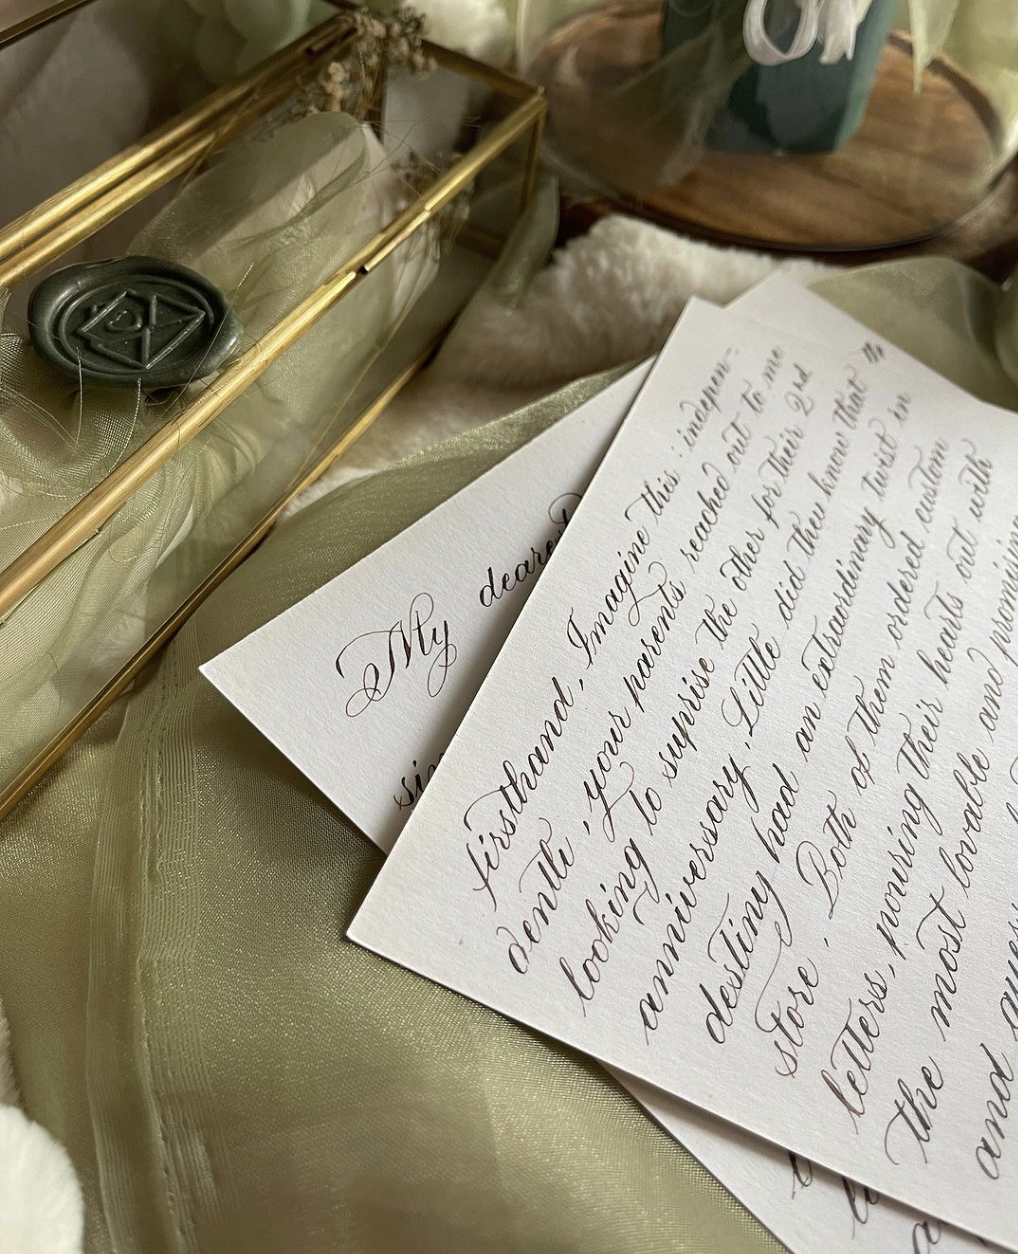 My
firsthand, Imagine this: indepen-
dentli, your parents reached out to me
looking to suprise the other for their 2nd
anniversary, Little did they know that
destiny had an extraordinary twist in
store. Both of them ordered custom
letters, pouring their hearts out with
the most lovable and promising
and